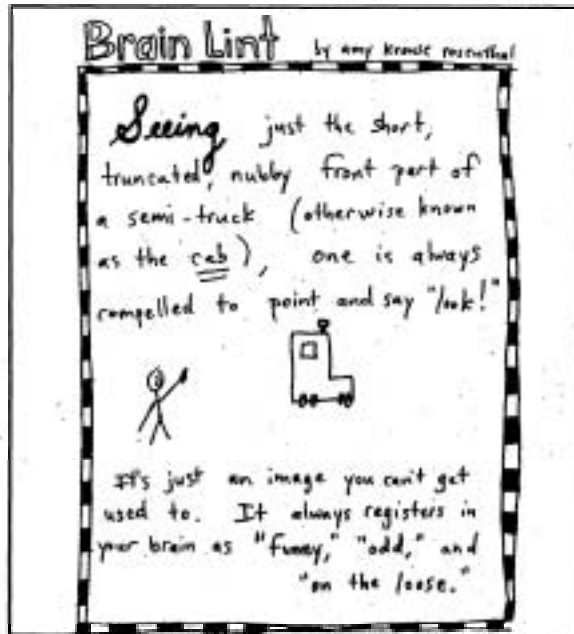 Brain Lint by amy krouse rosenthal
Seeing just the short,
truncated, nubby front part of
a semi-truck (otherwise known
as the cab), one is always
compelled to point and say "look!"
It's just an image you can't get
used to. It always registers in
your brain as "funny," "odd," and
"on the loose."